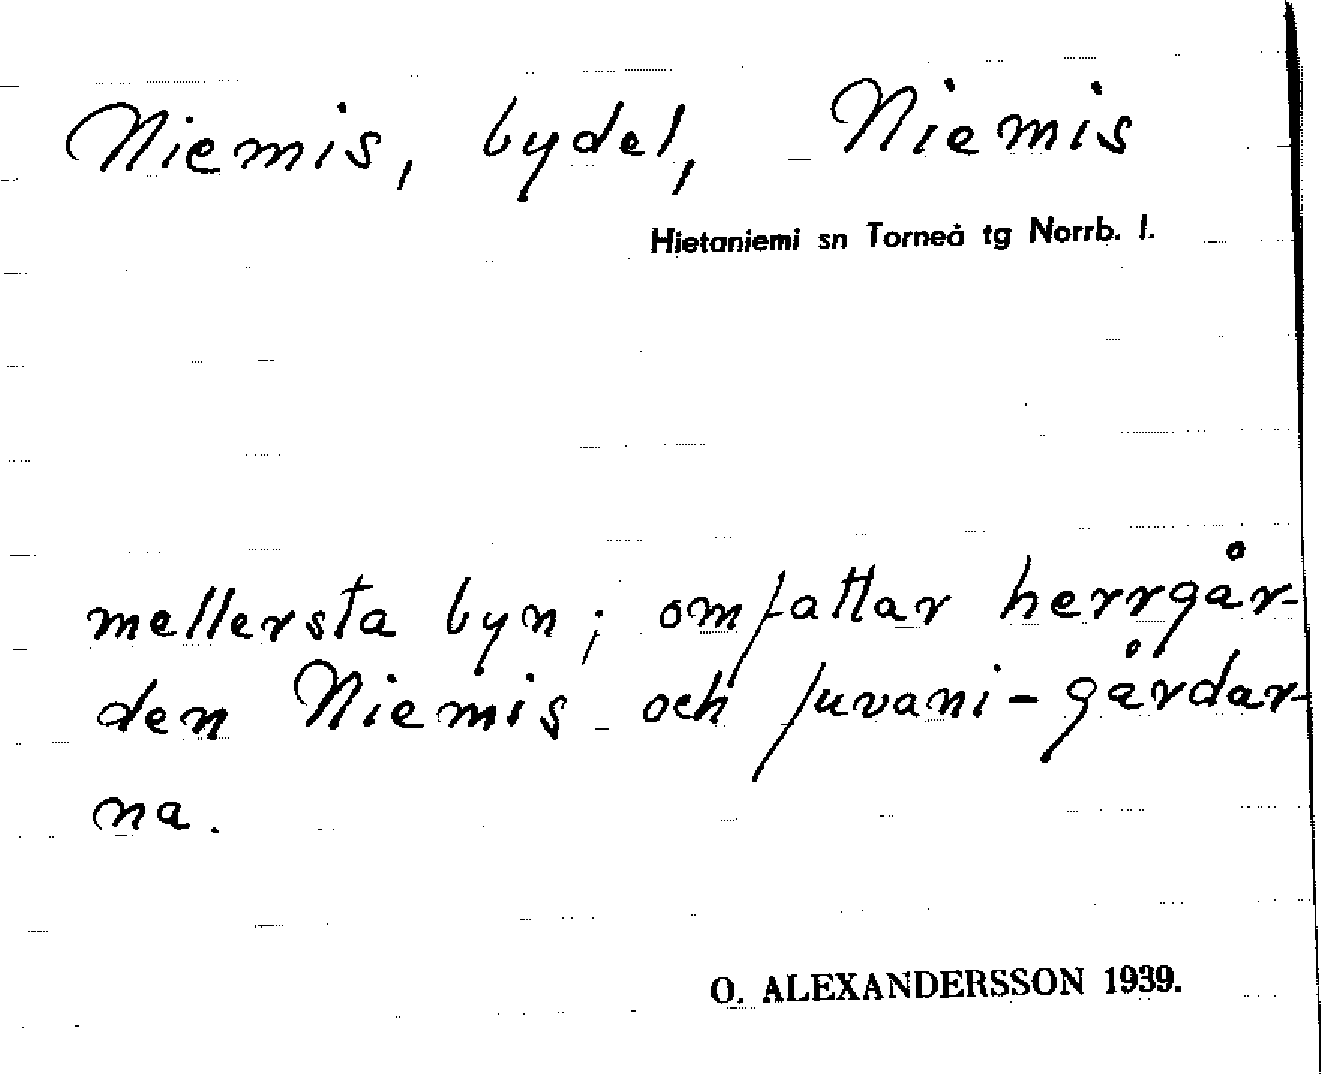 Niemis, bydel, Niemis
Hietaniemi sn Torneå tg Norrb. l.
mellersta byn; omfattar herrgår-
den Niemis och Juvani-gårdar-
na.
O. ALEXANDERSSON 1939.